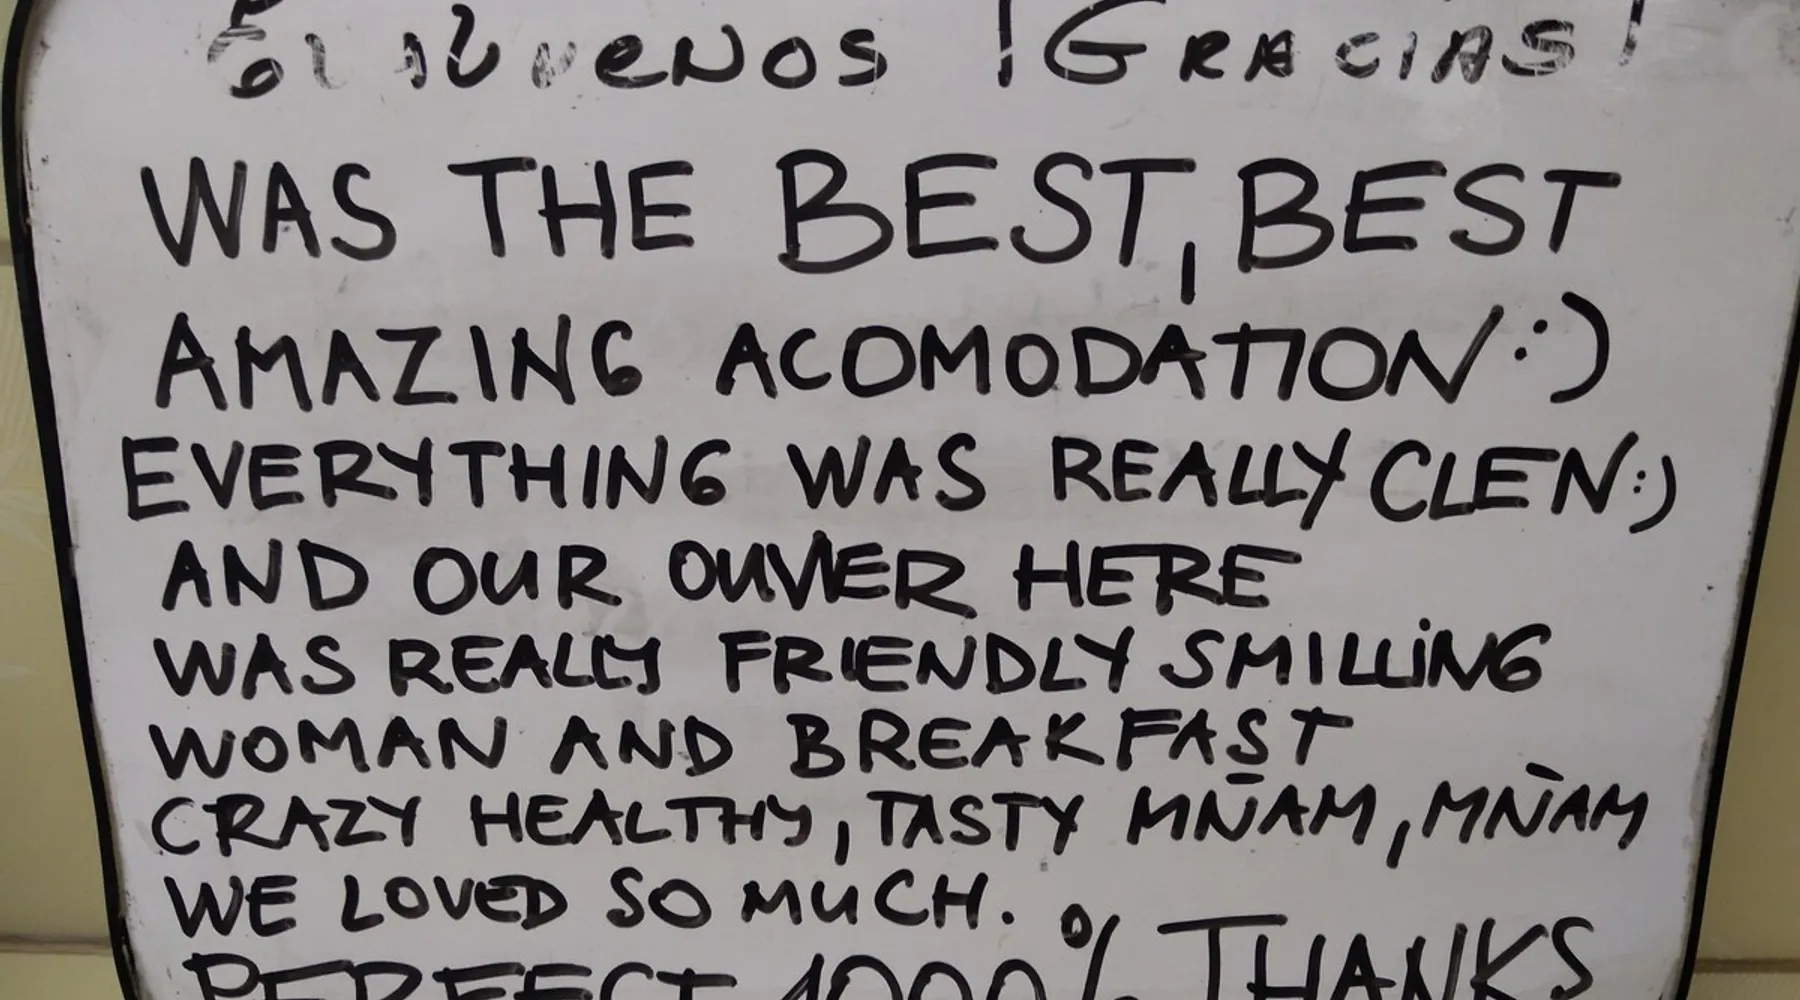 ¡Gracias!
WAS THE BEST, BEST
AMAZING ACOMODATION :)
EVERYTHING WAS REALLY CLEN :)
AND OUR OUVIER HERE
WAS REALLY FRIENDLY SMILLING
WOMAN AND BREAKFAST
CRAZY HEALTHY, TASTY MÑAM, MÑAM
WE LOVED SO MUCH.
PERFECT 1000% THANKS